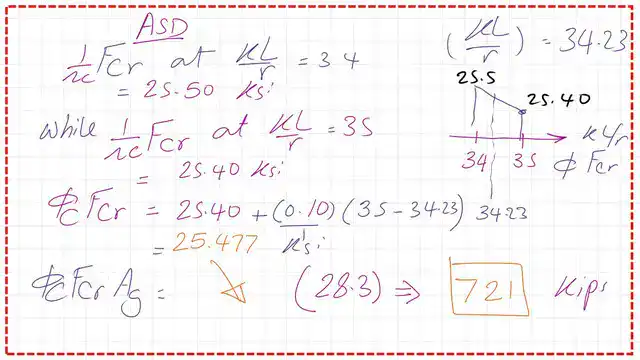 ASD
1/Ωc Fcr at KL/r = 34
= 25.50 Ksi
while 1/Ωc Fcr at KL/r = 35
= 25.40 Ksi
ΦcFcr = 25.40 + (0.10) (35-34.23)
= 25.477 Ksi
ΦcFcr Ag = (28.3) ⇒ 721 Kips
(KL/r) = 34.23
25.5
25.40
KL/r
34 35
Φ Fcr
34.23